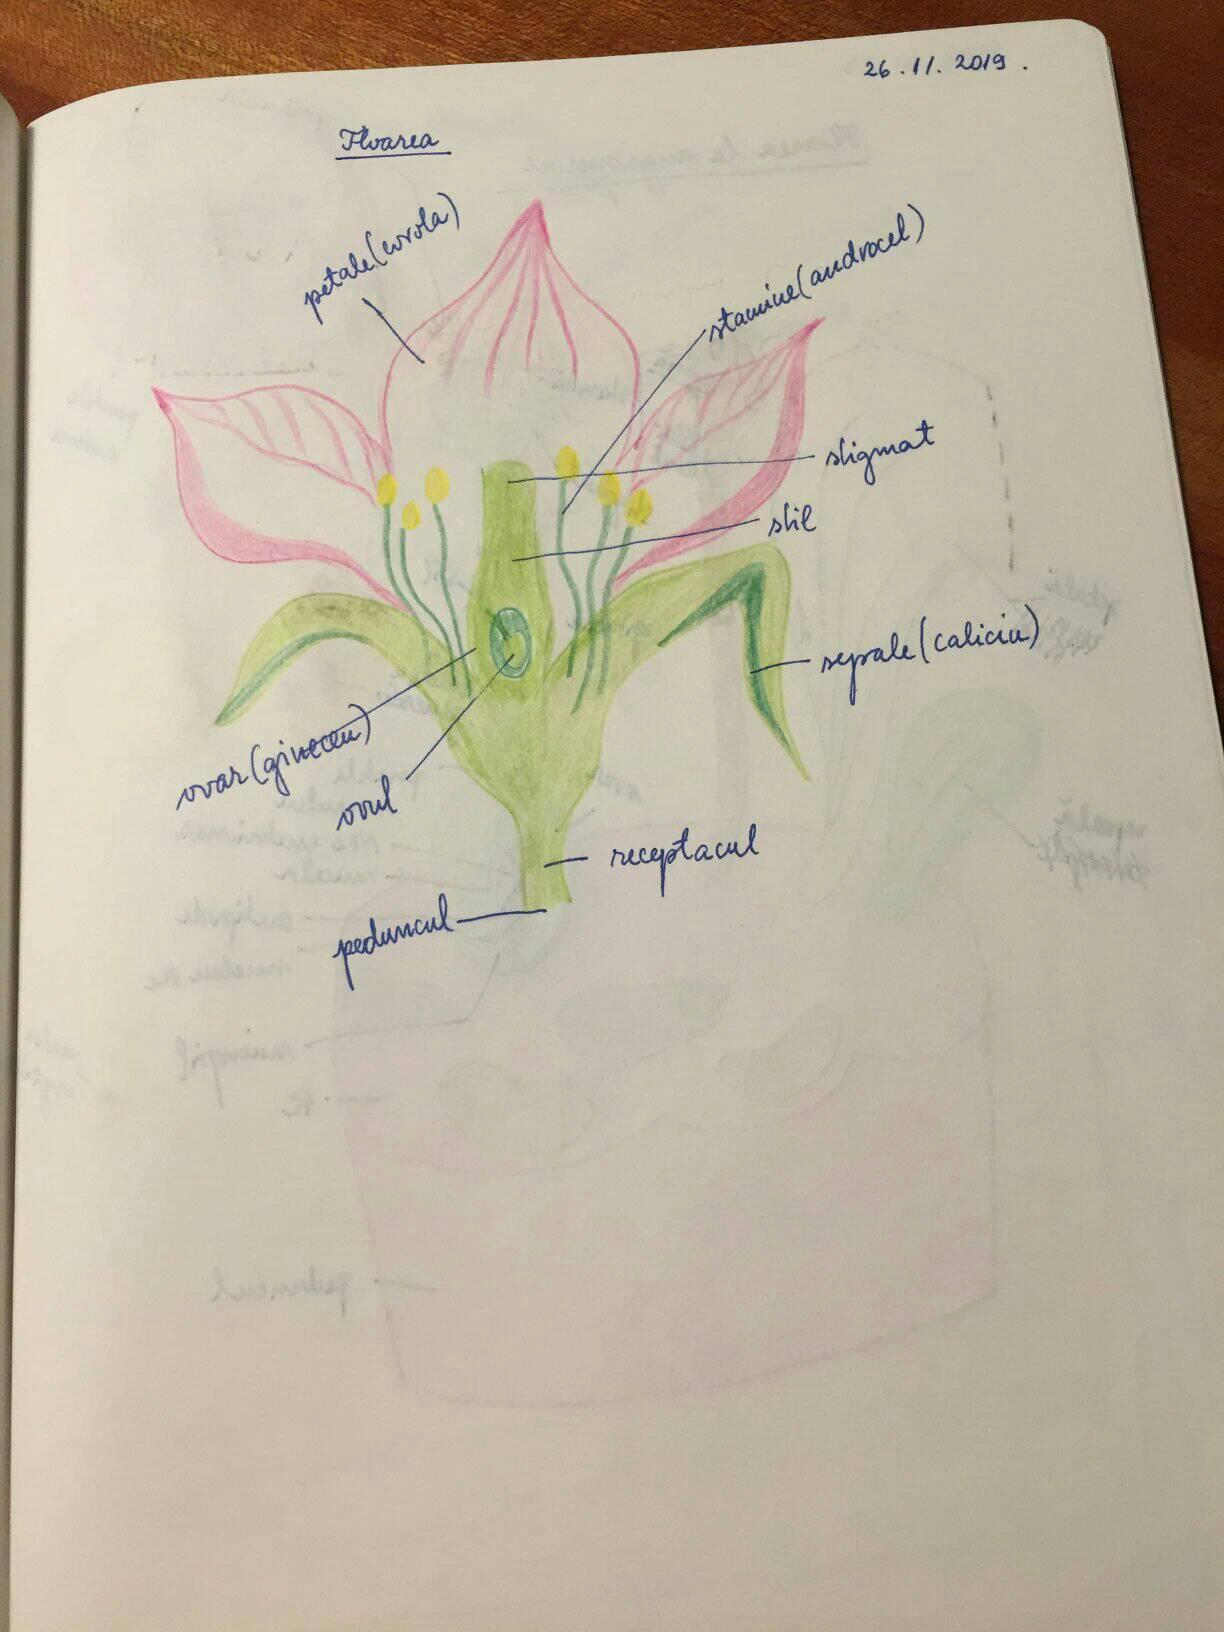 26.11.2019.
Floarea
petale(corola)
stamine(androcel)
stigmat
stil
sepale(caliciu)
ovar(gineceu)
ovul
receptacul
peduncul